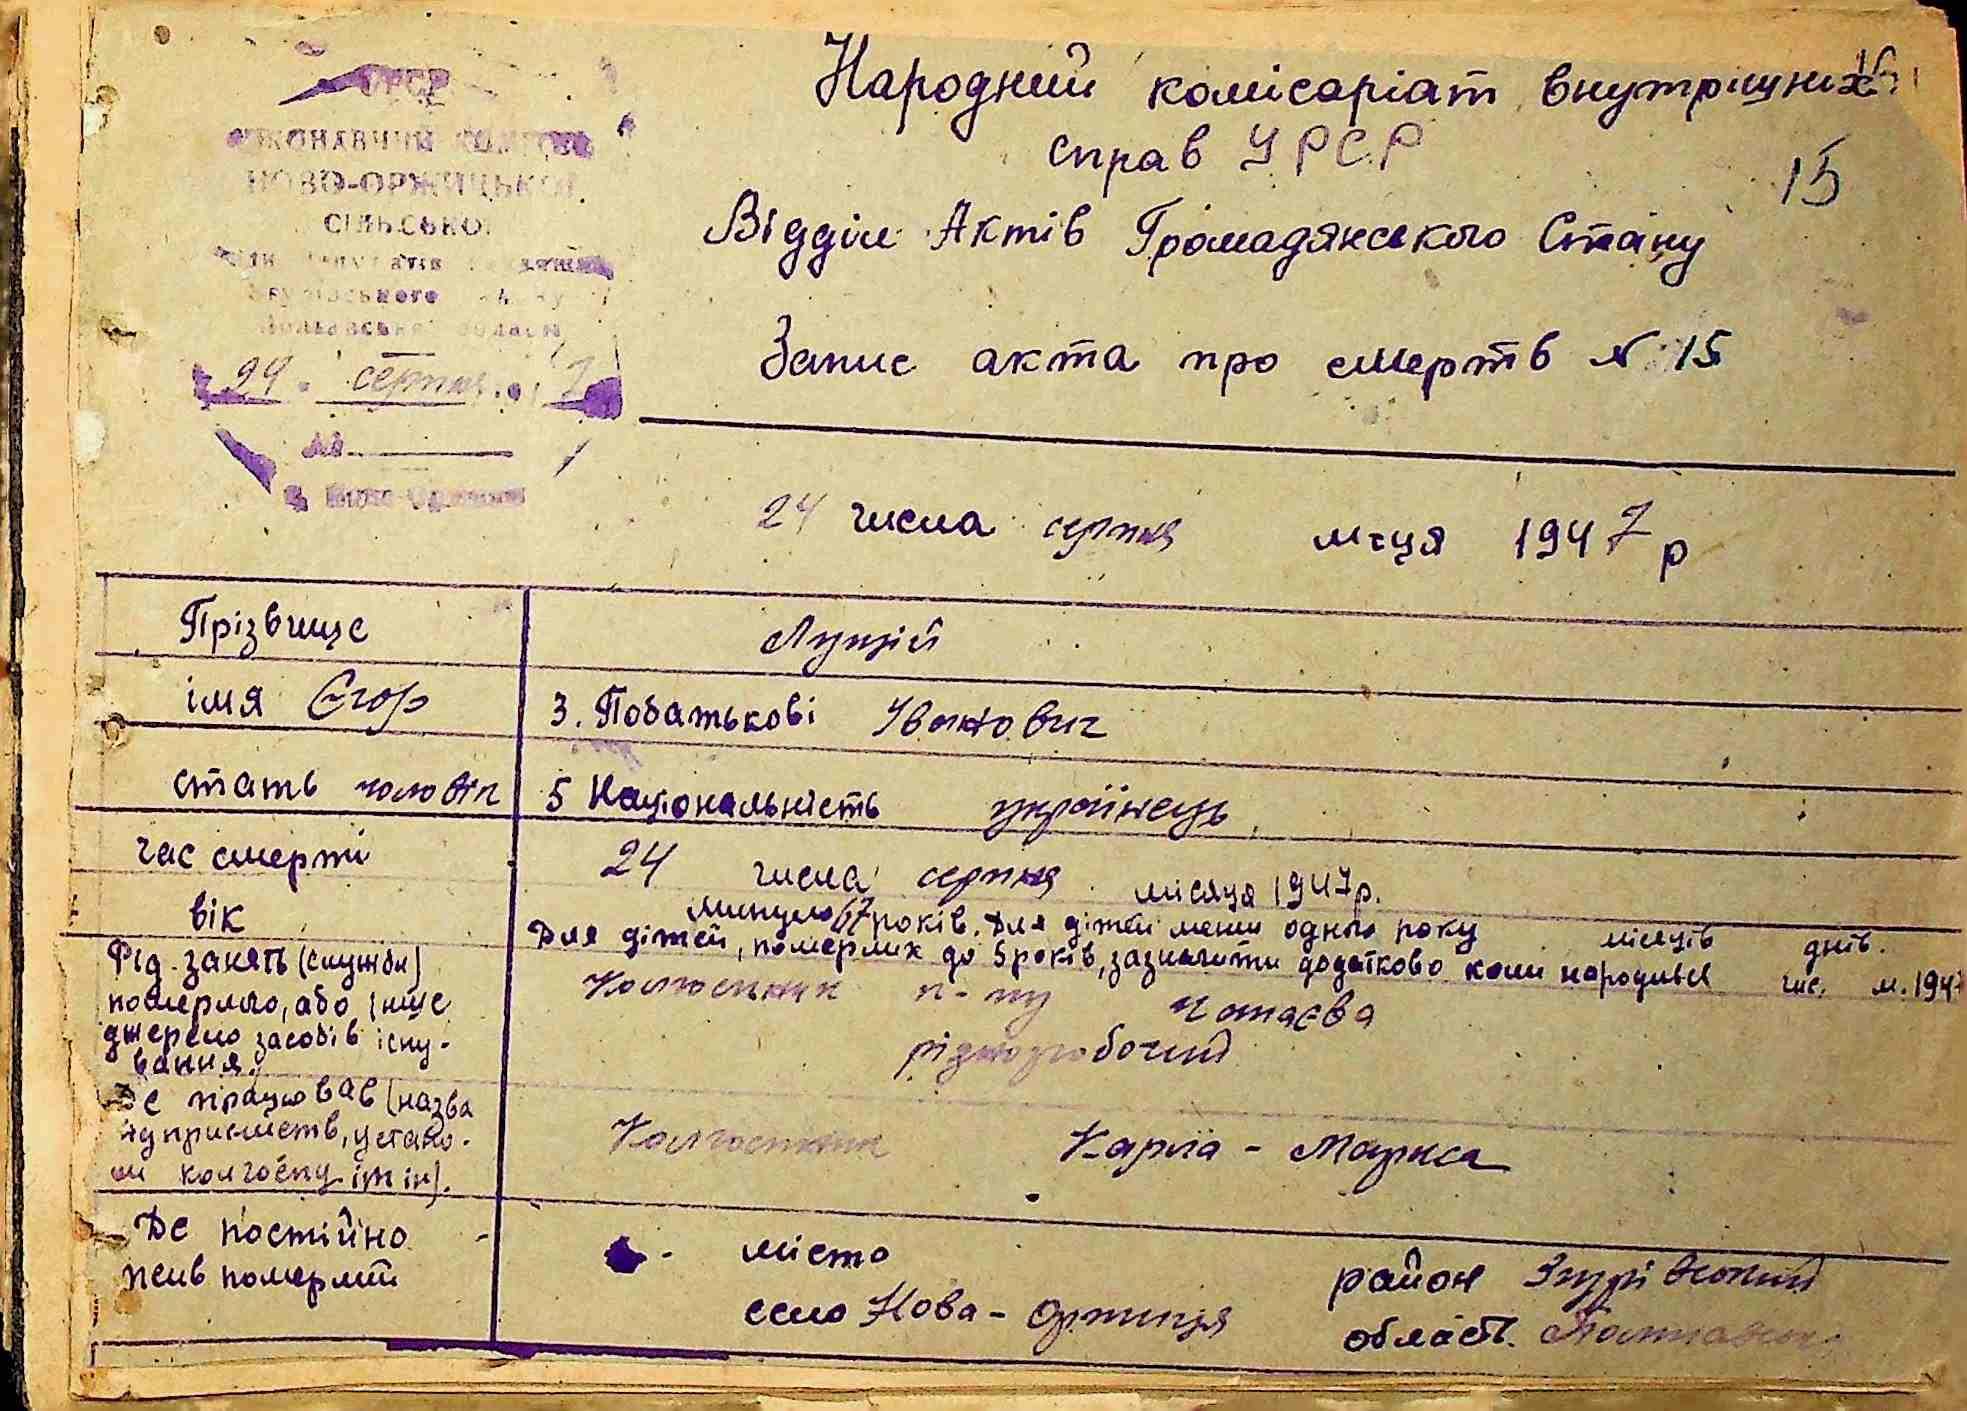 УРСР
ВИКОНАВЧИЙ КОМІТЕТ
НОВО-ОРЖИЦЬКОЇ
СІЛЬСЬКОЇ
29 серпня 7
№
Народний комісаріат внутрішніх
справ УРСР
15
Відділ Актів Громадянського Стану
Запис акта про смерть № 15
24 числа серпня м-ця 1947 р
Прізвище
імя Єгор 3. Побатькові Іванович
стать чоловік 5 Національність українець
час смерті 24 числа серпня місяця 1947 р.
вік минуло 67 років. Для дітей менш одного року місяців днів.
Для дітей, померлих до 5 років, зазначити додатково коли народився чис. м. 194
Рід занять (служби)
померлого, або інше
джерело засобів існу-
вання.
Колгоспник к-пу Чапаєва
різноробочий
Де працював (назва
підприємств, устано-
ви колгоспу і т ін).
Колгоспник Карла - Маркса
Де постійно
жив померлий
місто
село Нова - Оржиця
район Згурівський
област. Полтавська